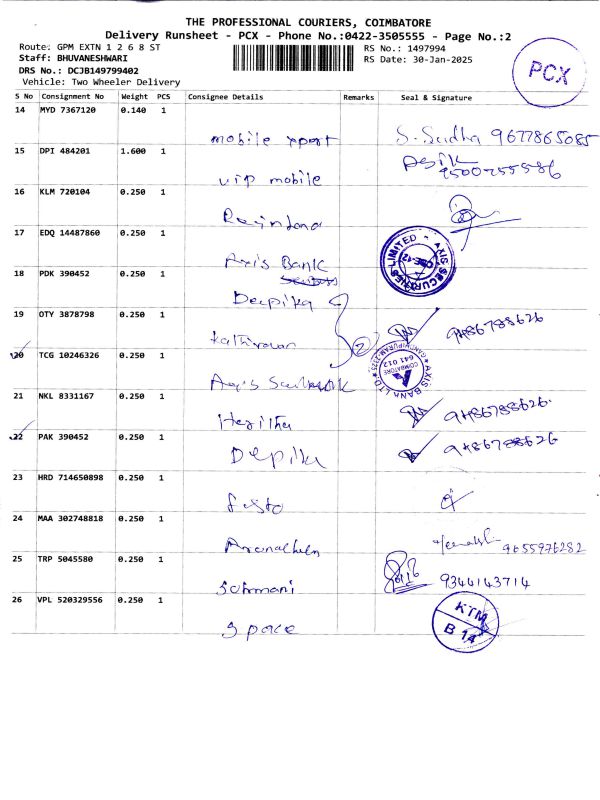 THE PROFESSIONAL COURIERS, COIMBATORE
Delivery Runsheet - PCX - Phone No.:0422-3505555 - Page No.:2
Route: GPM EXTN 1 2 6 8 ST
RS No.: 1497994
Staff: BHUVANESHWARI
RS Date: 30-Jan-2025
DRS No.: DCJB149799402
Vehicle: Two Wheeler Delivery
PCX
S No Consignment No Weight PCS Consignee Details Remarks Seal & Signature
14 MYD 7367120 0.140 1
mobile S. Sudha 9677865085
15 DPI 484201 1.600 1
vip mobile 9500255586
16 KLM 720104 0.250 1
17 EDQ 14487860 0.250 1
Axis Bank
AXIS SECURITIES LIMITED
18 PDK 390452 0.250 1
Deepika
19 OTY 3878798 0.250 1
Kathiravan 2 9486788626
20 TCG 10246326 0.250 1
Axis
AXIS BANK LTD
COIMBATORE
641 012
21 NKL 8331167 0.250 1
Haritha 9486788626
22 PAK 390452 0.250 1
Depika 9486788626
23 HRD 714650898 0.250 1
24 MAA 302748818 0.250 1
9655976282
25 TRP 5045580 0.250 1
9344143714
26 VPL 520329556 0.250 1
Space
KTM
B 14